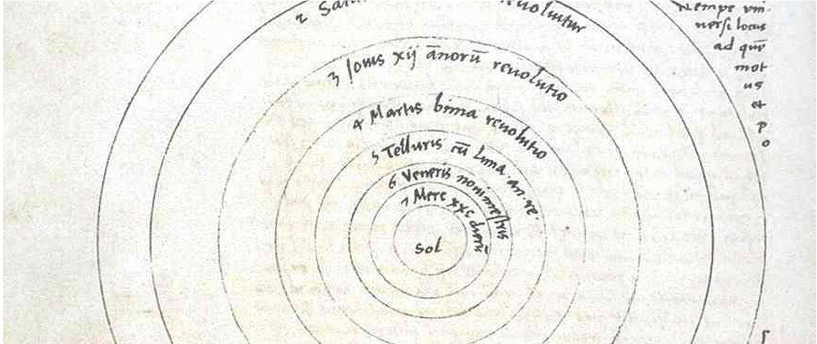 2 reuoluitur
3 Iouis xij ānorū reuolutio
4 Martis bima reuolutio
5 Telluris cū Luna an. re.
6 Veneris nonimestris
7 Merc xxc dierū
Sol
Nempe uni
uersi locus
ad quē
mot
us
et
p
o